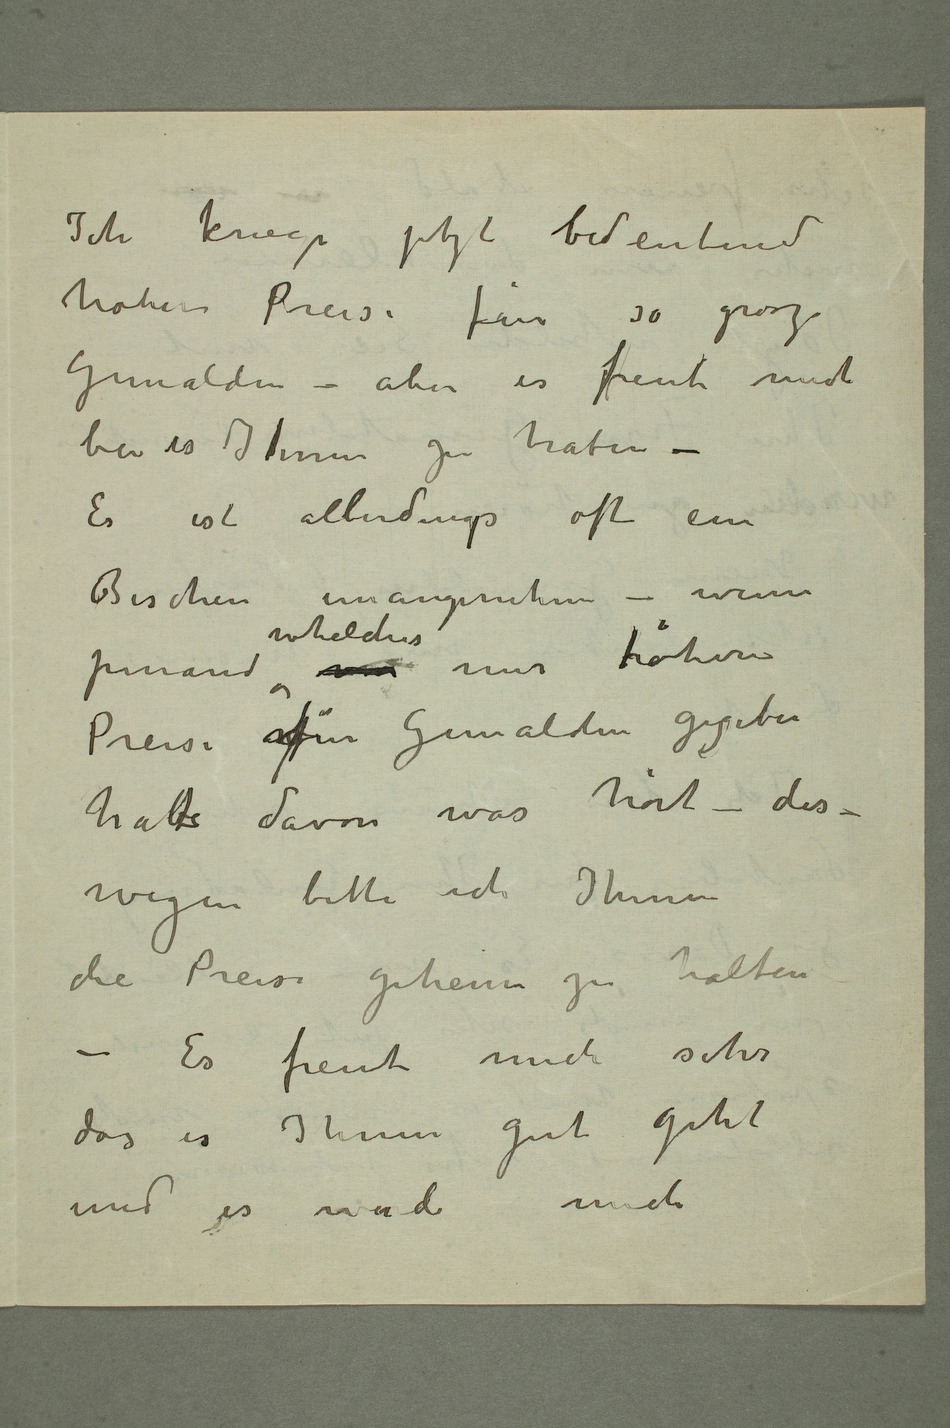 Ich kriege jetzt bedeutend
hohere Preise für so grosze
Gemälden – aber es freut mich
bei es Ihnen zu haben –
Es ist allerdings oft ein
Bischen unangenehm – wenn
jemand whelches mir höhere
Preise für Gemälden gegeben
hat davon was hört – des–
wegen bitte ich Ihnen
die Preise geheim zu halten
– Es freut mich sehr
das es Ihnen gut geht
und es würde mich